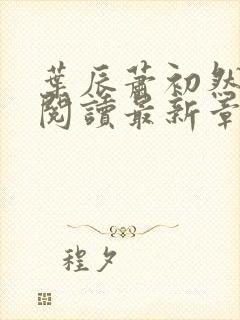 葉辰蕭初然
閱讀最新章
程夕